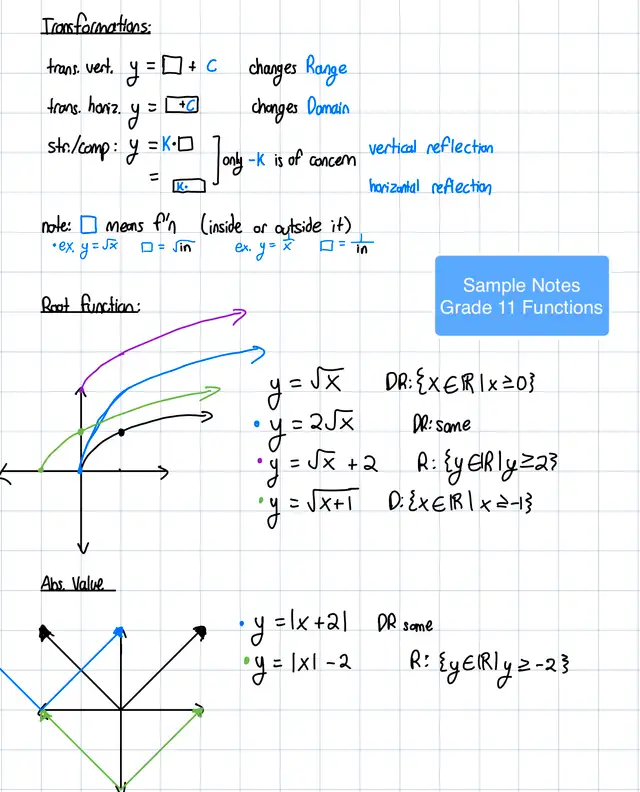 Transformations:
trans. vert. y = □ + C changes Range
trans. horiz. y = □+C changes Domain
str./comp: y = K·□ ] only -K is of concern vertical reflection
= K·□ horizontal reflection
note: □ means f'n (inside or outside it)
• ex. y = √x □ = √in ex. y = 1/x □ = 1/in
Sample Notes
Grade 11 Functions
Root function:
y = √x DR: {x ∈ ℝ | x ≥ 0}
• y = 2√x DR: same
• y = √x + 2 R: {y ∈ ℝ | y ≥ 2}
• y = √x+1 D: {x ∈ ℝ | x ≥ -1}
Abs. Value
• y = |x + 2| DR same
• y = |x| - 2 R: {y ∈ ℝ | y ≥ -2}